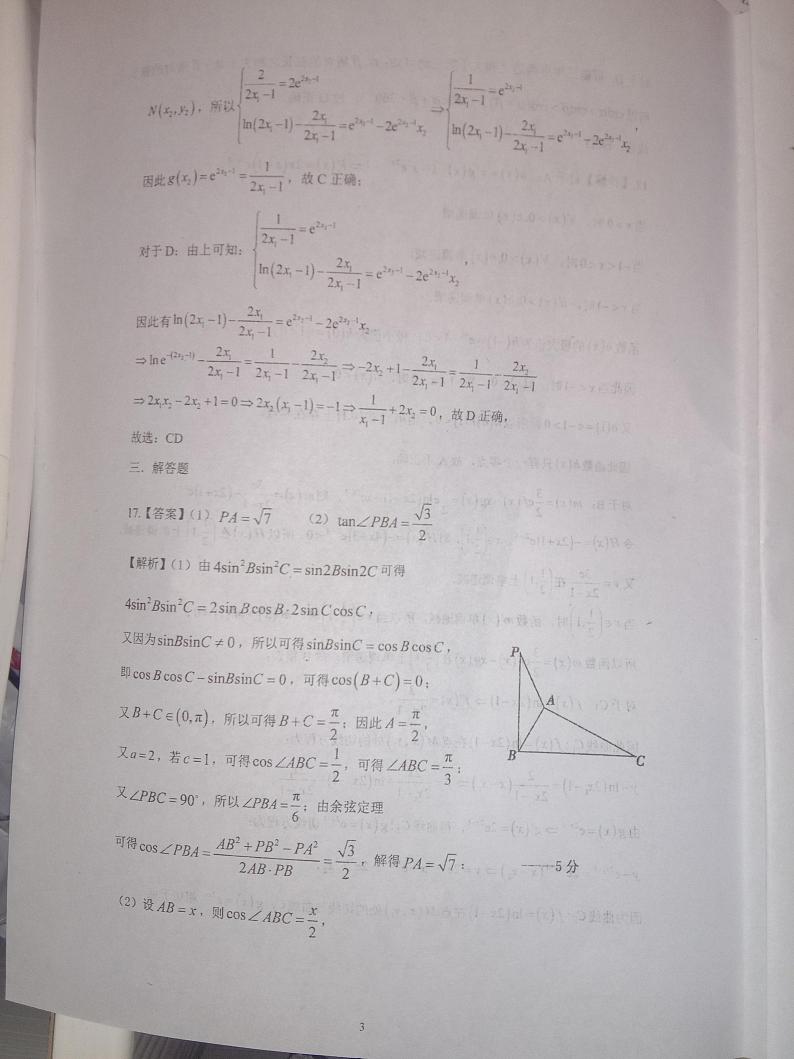 N(x₂,y₂)，所以{2/(2x₁−1)=2e^(2x₂−1)，ln(2x₁−1)−2x₁/(2x₁−1)=e^(2x₂−1)−2e^(2x₂−1)x₂ ⇒ {1/(2x₁−1)=e^(2x₂−1)，ln(2x₁−1)−2x₁/(2x₁−1)=e^(2x₂−1)−2e^(2x₂−1)x₂，
因此g(x₂)=e^(2x₂−1)=1/(2x₁−1)，故 C 正确；
对于 D：由上可知：{1/(2x₁−1)=e^(2x₂−1)，ln(2x₁−1)−2x₁/(2x₁−1)=e^(2x₂−1)−2e^(2x₂−1)x₂，
因此有ln(2x₁−1)−2x₁/(2x₁−1)=e^(2x₂−1)−2e^(2x₂−1)x₂
⇒ln e^(−(2x₂−1))−2x₁/(2x₁−1)=1/(2x₁−1)−2x₂/(2x₁−1)⇒−2x₂+1−2x₁/(2x₁−1)=1/(2x₁−1)−2x₂/(2x₁−1)
⇒2x₁x₂−2x₂+1=0⇒2x₂(x₁−1)=−1⇒1/(x₁−1)+2x₂=0，故 D 正确，
故选：CD
三．解答题
17.【答案】（1）PA=√7 （2）tan∠PBA=√3/2
【解析】（1）由4sin²Bsin²C=sin2Bsin2C可得
4sin²Bsin²C=2sinBcosB·2sinCcosC，
又因为sinBsinC≠0，所以可得sinBsinC=cosBcosC，
即cosBcosC−sinBsinC=0，可得cos(B+C)=0；
又B+C∈(0,π)，所以可得B+C=π/2；因此A=π/2，
又a=2，若c=1，可得cos∠ABC=1/2，可得∠ABC=π/3；
又∠PBC=90°，所以∠PBA=π/6；由余弦定理
可得cos∠PBA=(AB²+PB²−PA²)/(2AB·PB)=√3/2，解得PA=√7； ——5 分
（2）设AB=x，则cos∠ABC=x/2，
P
A
B
C
3